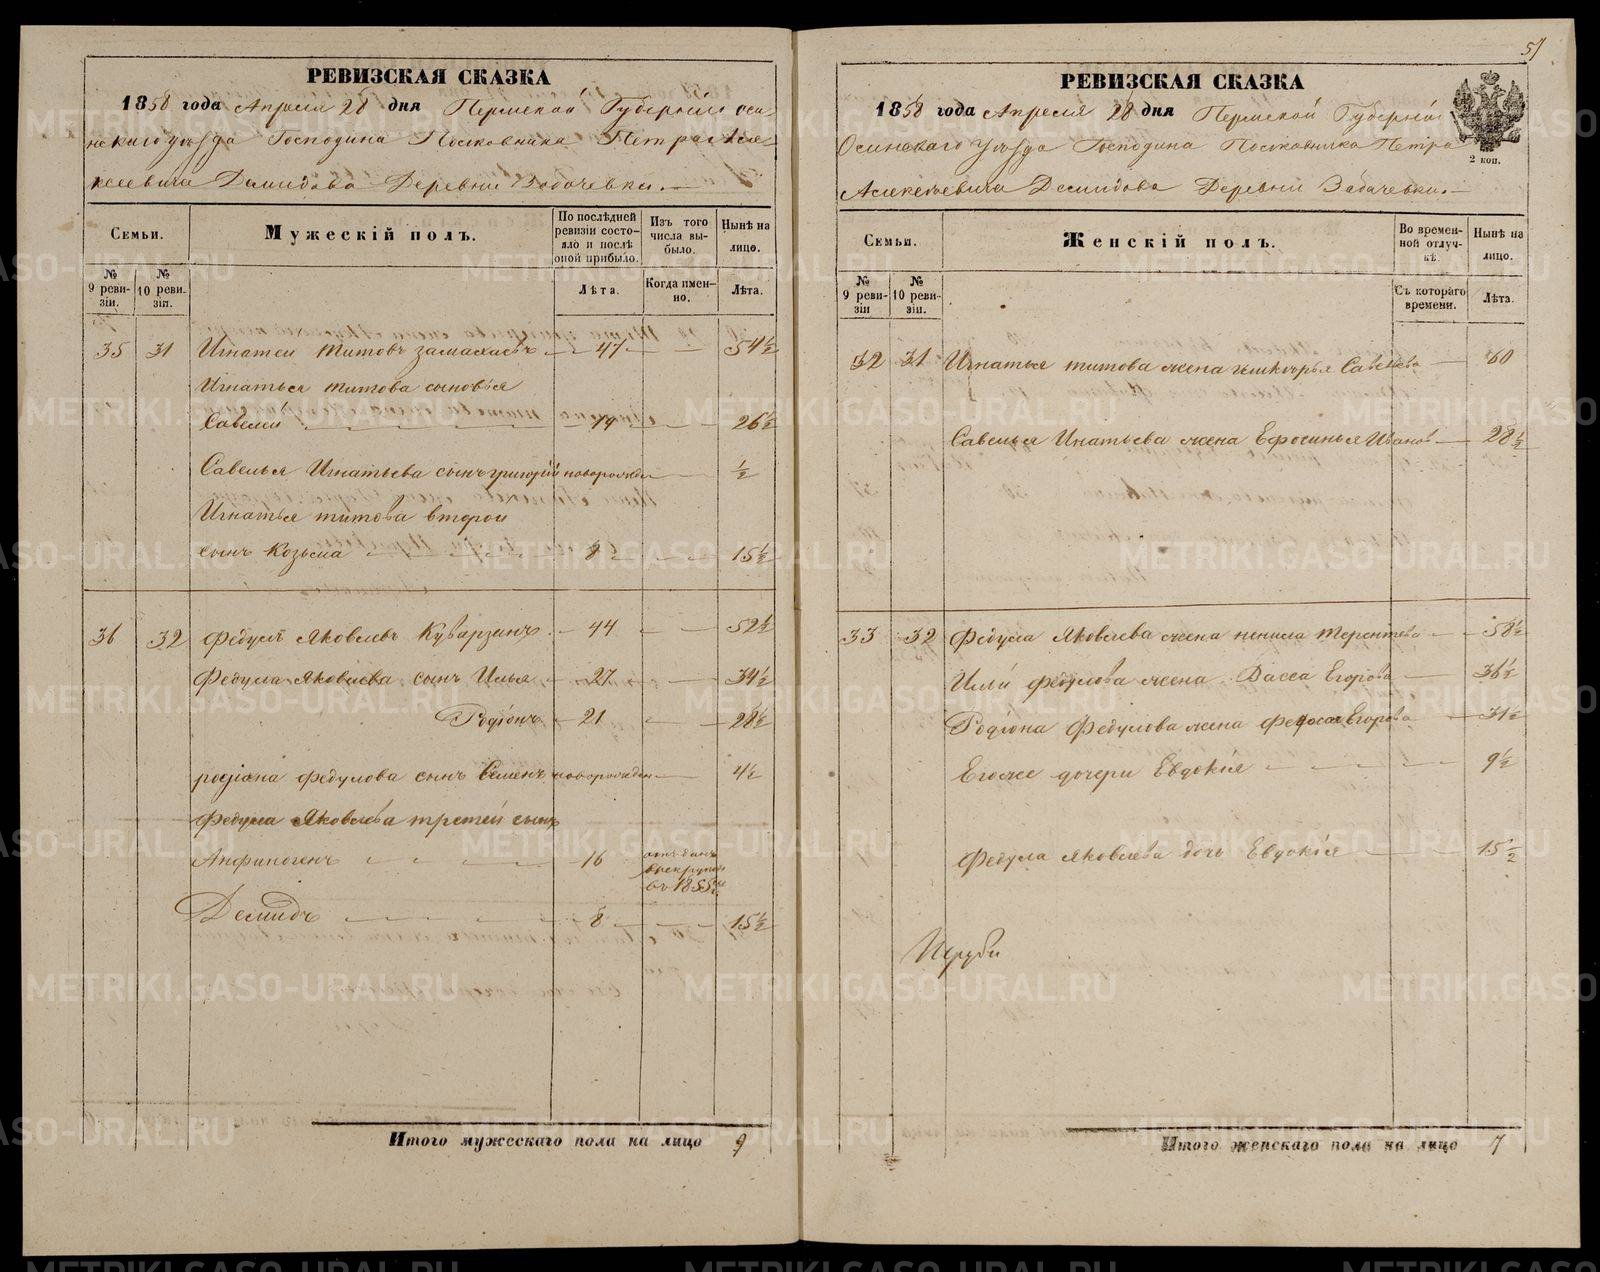 РЕВИЗСКАЯ СКАЗКА
1858 года Апреля 28 дня Пермской Губернiи Оси-
нскаго уѣзда Господина Полковника Петра Але-
ксеевича Демидова Деревни Забачевки.
Семьи.
Мужескiй полъ.
По послѣдней ревизiи состо-яло и послѣ оной прибыло.
Изъ того числа вы-было.
Нынѣ на лицо.
№ 9 реви-зiи.
№ 10 реви-зiи.
Лѣта.
Когда имен-но.
Лѣта.
35 31 Игнатей Титовъ 47 54½
Игнатья Титова сыновья
Савелей 19 26½
Савелья Игнатьева сынъ григорiй новорожден ½
Игнатья титова второй
сынъ Козьма 8 15½
36 32 Федулъ Яковлевъ Куварзинъ 44 52½
Федула Яковлева сынъ Илья 27 34½
Родiонъ 21 28½
родiона федулова сынъ Семенъ новорожден 4½
Федула Яковлева третей сынъ
Анфиногенъ 16 въ 1855
Демидъ 8 15½
Итого мужескаго пола на лицо 9
51
РЕВИЗСКАЯ СКАЗКА
1858 года Апреля 28 дня Пермской Губернiи
Осинскаго Уѣзда Господина Полковника Петра
Алексеевича Демидова Деревни Забачевки.
2 коп.
Семьи.
Женскiй полъ.
Во времен-ной отлуч-кѣ.
Нынѣ на лицо.
№ 9 реви-зiи
№ 10 реви-зiи.
Съ котораго времени.
Лѣта.
32 31 Игнатья титова жена Савельева 60
Савелья Игнатьева жена Ефросинья Иванов 28½
33 32 Федула Яковлева жена ненила терентева 58½
Ильи федулова жена Васса Егорова 36½
Родiона Федулова жена Федосья Егорова 31½
Егоже дочери Евдокiя 9½
Федула Яковлева дочь Евдокiя 15½
Итого женскаго пола на лицо 7
METRIKI.GASO-URAL.RU